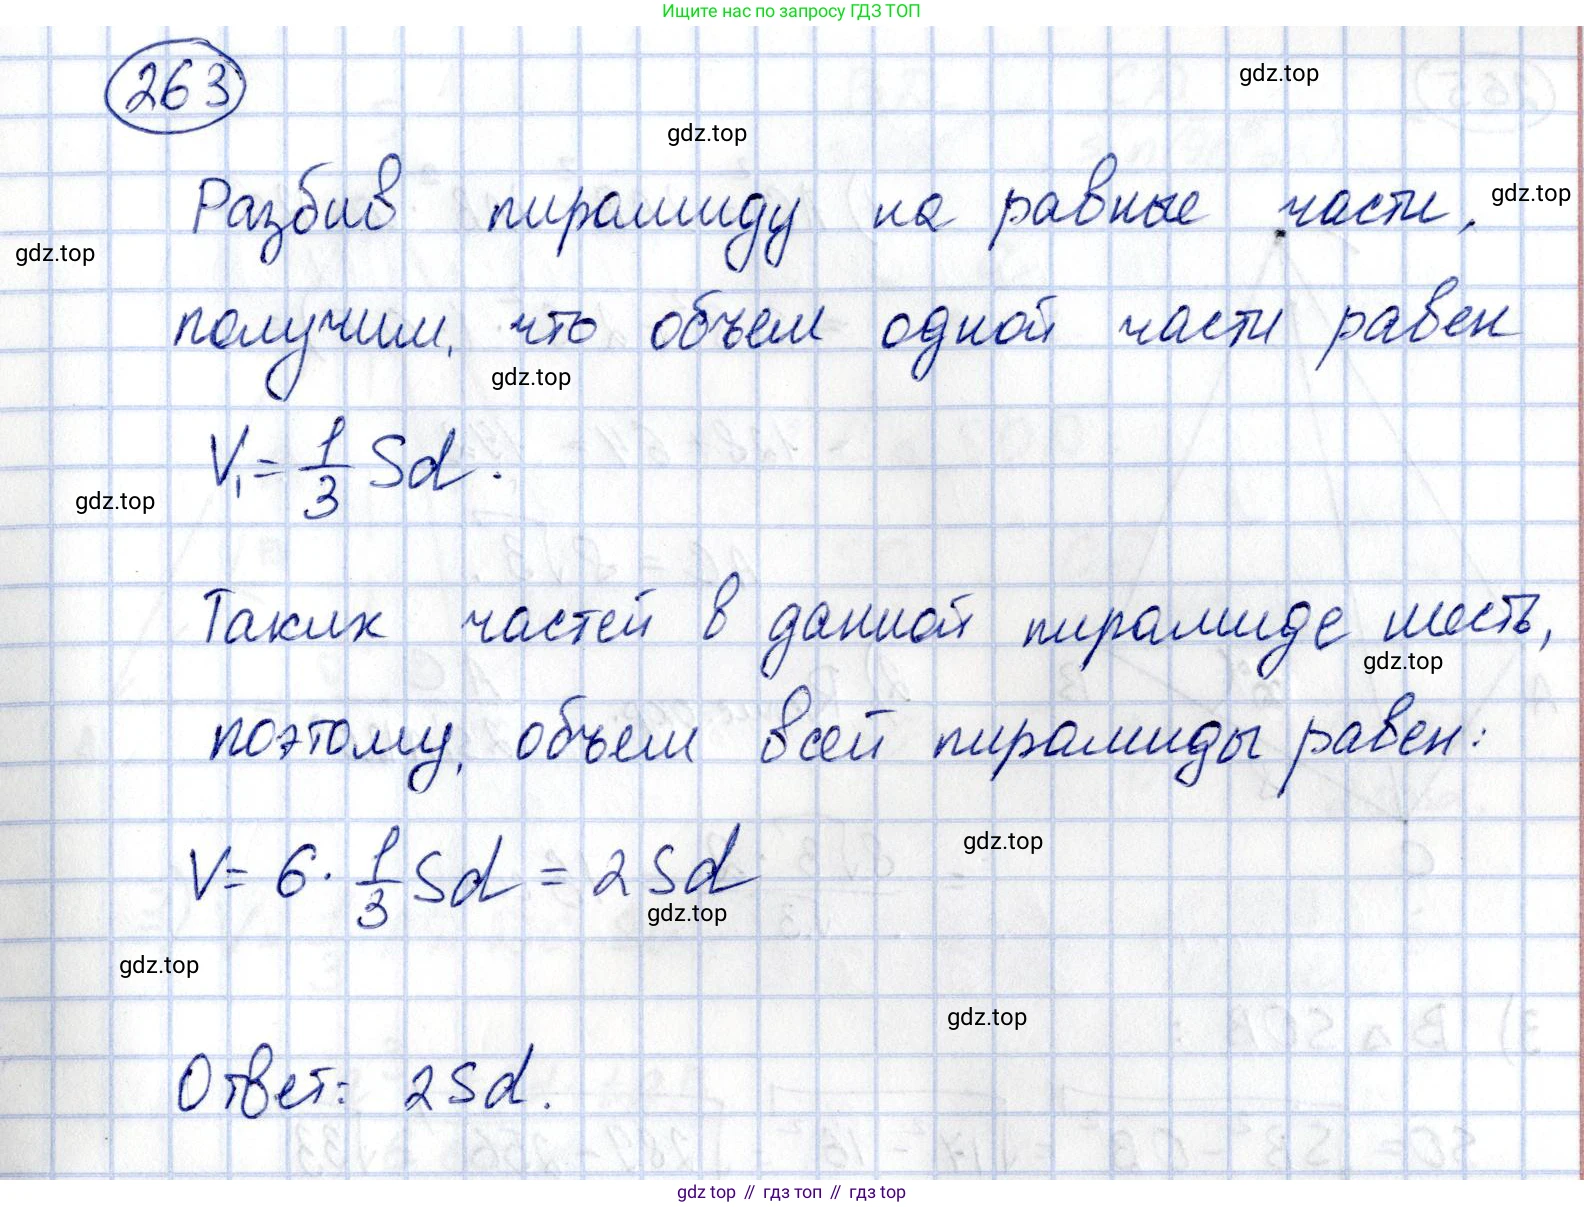 Ищите нас по запросу ГДЗ ТОП
263
gdz.top
gdz.top
Разбив пирамиду на равные части,
gdz.top
gdz.top
получим, что объем одной части равен
gdz.top
V₁ = 1/3 Sd.
gdz.top
Таких частей в данной пирамиде шесть,
gdz.top
поэтому, объем всей пирамиды равен:
V = 6 · 1/3 Sd = 2Sd
gdz.top
gdz.top
gdz.top
gdz.top
Ответ: 2Sd.
gdz top // гдз топ // гдз top